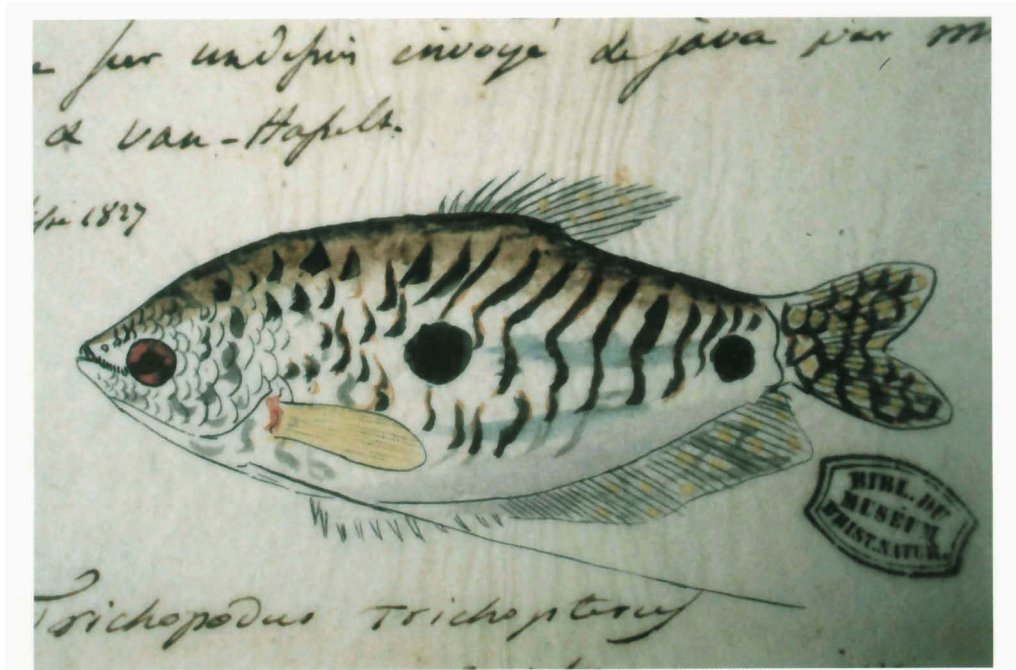 sur un dessin envoyé de java par m
& van-Hasselt.
1827
BIBL. DU
MUSÉUM
D'HIST. NATUR.
Trichopodus Trichopterus